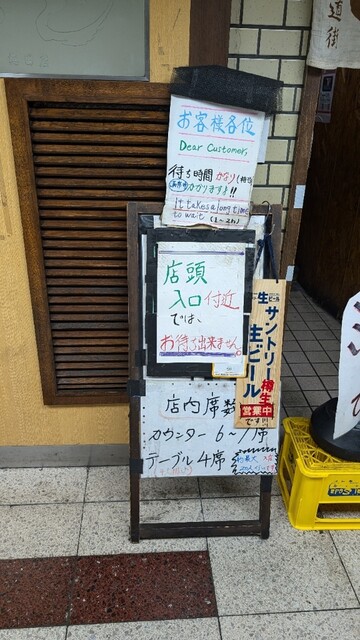 道街
お客様各位
Dear Customers
待ち時間かなり
かかります!!
It takes a long time
to wait
店頭
入口付近
では、
お待ち出来ません。
生ビール
サントリー樽生
生ビール
営業中
店内席数
です
カウンター6~7席
テーブル4席